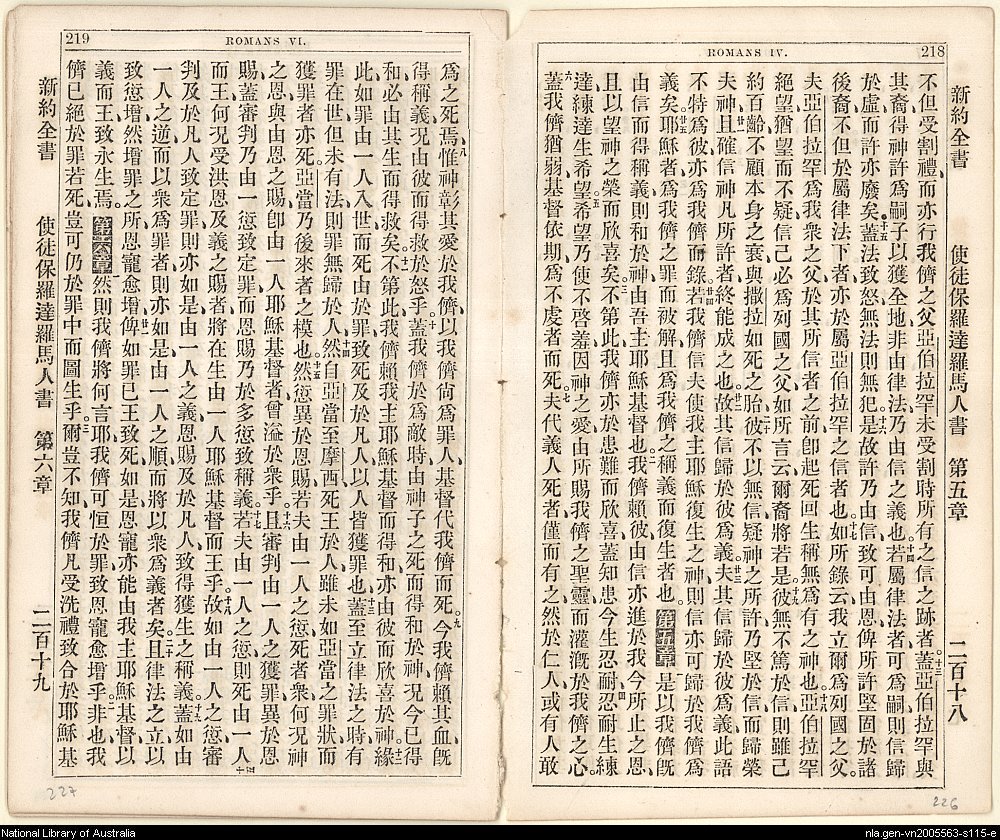 218
ROMANS IV.
新約全書 使徒保羅達羅馬人書 第五章 二百十八
不但受割禮、而亦行我儕之父亞伯拉罕未受割時所有之信之跡者。蓋亞伯拉罕與
其裔得神許爲嗣子以獲全地、非由律法、乃由信之義也。若屬律法者、可爲嗣、則信歸
於虛、而許亦廢矣。蓋法致怒、無法則無犯。是故許乃由信、致可由恩、俾所許堅固於諸
後裔、不但於屬律法下者、亦於屬亞伯拉罕之信者也。如所錄云、我立爾爲列國之父。
夫亞伯拉罕爲我衆之父、於其所信者之前、卽起死回生、稱無爲有之神也。亞伯拉罕
絕望猶望、而不疑信己必爲列國之父、如所言云、爾裔將若是。彼無不篤於信、則雖己
約百齡、不顧本身之衰、與撒拉如死之胎。彼不以無信疑神之所許、乃堅於信、而歸榮
夫神、且確信神凡所許者、終能成之也。故其信歸於彼爲義。夫其信歸於彼爲義、此語
不特爲彼而錄、亦爲我儕。若我儕信夫使我主耶穌復生之神、則信亦可歸於我儕爲
義矣。耶穌者、爲我儕之罪而被解、且爲我儕之稱義而復生者也。第五章是以我儕旣
由信而得稱義、則和於神、由吾主耶穌基督也。我儕賴彼、由信亦進於我今所止之恩、
且以望神之榮而欣喜矣。不第此、我儕亦於患難而欣喜、蓋知患難生忍耐、忍耐生練
達、練達生希望。希望乃使不啓羞、因神之愛、由所賜我儕之聖靈、而灌溉於我儕之心。
蓋我儕猶弱、基督依期、爲不虔者而死。夫代義人死者、僅而有之、然於仁人、或有人敢
219
ROMANS VI.
爲之死焉。惟神彰其愛於我儕、以我儕尙爲罪人、基督代我儕而死。今我儕賴其血旣
得稱義、況由彼而得救於怒乎。蓋我儕於爲敵時、由神子之死而得和於神、況今已得
和、必由其生而得救矣。不第此、我儕賴我主耶穌基督而得和、亦由彼而欣喜於神。緣
此如罪由一人入世、而死由於罪、致死及於凡人、以人皆獲罪也。蓋至立律法之時、有
罪在世、但未有法、則罪無歸於人。然自亞當至摩西、死王於人、雖未如亞當之罪狀而
獲罪者亦死。亞當乃後來者之模也。然愆異於恩賜、若夫由一人之愆、死者衆、何況神
之恩、與由恩之賜、卽由一人耶穌基督者、曾溢於衆乎。且審判由一人之獲罪、異於恩
賜、蓋審判乃由一愆致定罪、而恩賜乃於多愆致稱義。若夫由一人之愆、則死由一人
而王、何况受洪恩及義之賜者、將在生由一人耶穌基督而王乎。故如由一人之愆、審
判及於凡人致定罪、則亦如是由一人之義、恩賜及於凡人、致得獲生之稱義。蓋如由
一人之逆而以衆爲罪者、則亦如是由一人之順而將以衆爲義者矣。且律法之立、以
致愆增、然增罪之所、恩寵愈增、俾如罪已王致死、如是恩寵亦能由我主耶穌基督、以
義而王、致永生焉。第六章然則我儕將何言耶、我儕可恒於罪、致恩寵愈增乎。非也。我
儕已絕於罪若死、豈可仍於罪中而圖生乎。爾豈不知、我儕凡受洗禮致合於耶穌基
新約全書 使徒保羅達羅馬人書 第六章 二百十九
227
226
National Library of Australia
nla.gen-vn2005563-s115-e